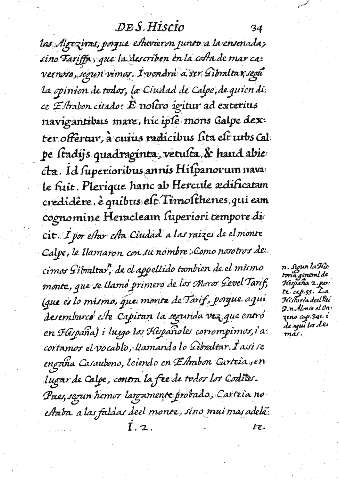 DE S. HISCIO 34
las Algeziras, porque estuvieron junto a la ensenada,
sino Tariffa, que la describen en la costa de mar ca-
vernoso, segun vimos. I vendrà a ser Gibraltar, segũ
la opinion de todos, la Ciudad de Calpe, de quien di-
ce Estrabon citado: E nostro igitur ad exterius
navigantibus mare, hic ipse mons Calpe dex-
ter offertur, à cuius radicibus sita est urbs Cal
pe stadijs quadraginta, vetusta, & haud abie
cta. Id superioribus annis Hispanorum nava
le fuit. Plerique hanc ab Hercule ædificatam
credidêre, è quibus est Timosthenes, qui eam
cognomine Heracleam superiori tempore di
cit. I por estar esta Ciudad a las raizes de el monte
Calpe, le llamaron con su nombre. Como nosotros de-
cimos Gibraltar, de el appellido tambien de el mismo
monte, que se llamò primero de los Moros Gevel Tarif,
(que es lo mismo, que monte de Tarif, porque aqui
desembarcò este Capitan la segunda vez que entrò
en España) i luego los Españoles corrompimos, i a-
cortamos el vocablo, llamando lo Gibraltar. I assi se
engaña Casaubono, leiendo en Estrabon Carteia, en
lugar de Calpe, contra la fee de todos los Codices.
Pues, segun hemos largamente probado, Carteia no
estaba a las faldas de el monte, sino mui mas adelã
I. 2. te.
n. Segun la His
toria general de
España 2. par-
te. cap. 55. La
Historia del Rei
D. n. Alonso el On
zeno cap. 341. i
de aqui los de
mas.